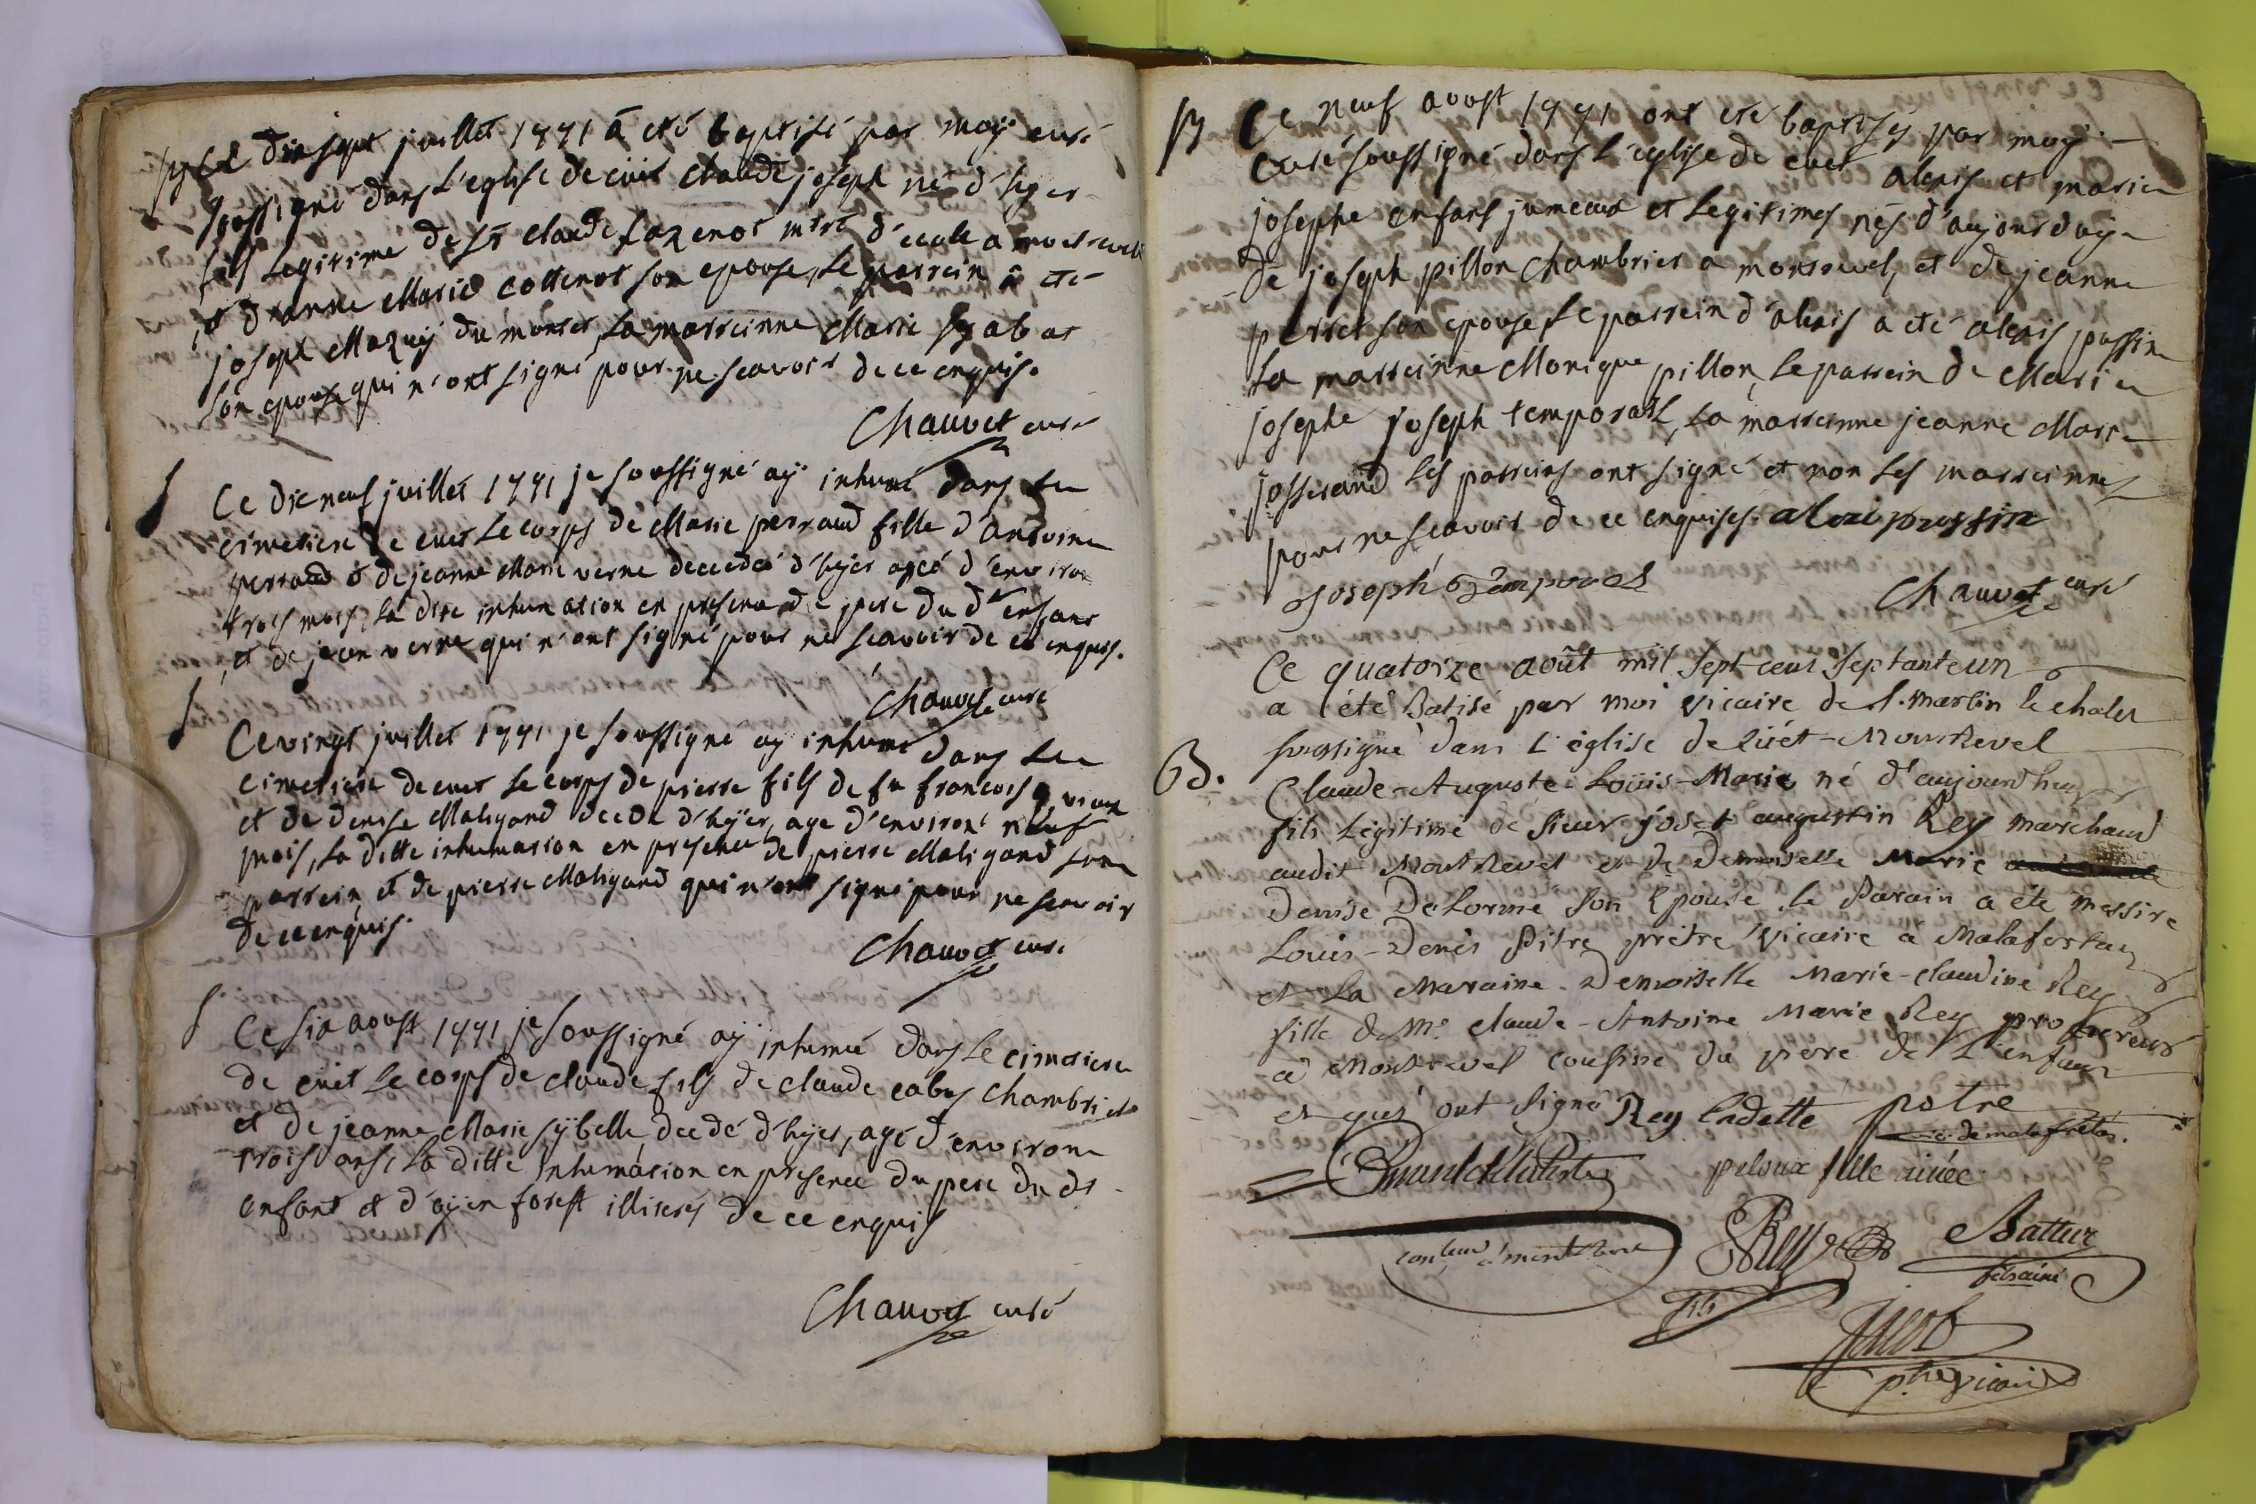 B Ce dix sept juillet 1771 à eté baptisé par moÿ curé
soussigné dans l'eglise de cuet claude joseph né d'hyer
fils legitime de sr claude maitre d'ecole a
et d'anne Marie cottenot son epouse, le parrein à eté
joseph Mazuÿ du montet, la marreinne Marie
son epouse qui n'ont signé pour ne scavoir de ce enquis.
Chauvet curé
S
Ce dix neuf juillet 1771 je soussigné aÿ inhumé dans le
cimetiere de cuet le corps de Marie perraud fille d'antoine
perraud et de jeanne Marie verne decedée d'hyer agée d'environ
trois mois, la dite inhumation en presence de pere du dt enfant
et de jean verne qui n'ont signé pour ne scavoir de ce enquis.
Chauvet curé
S
Ce vingt juillet 1771 je soussigné aÿ inhumé dans le
cimetiere de cuet le corps de pierre fils de fu francois
et de denise Maligand decedé d'hÿer, agé d'environ neuf
mois, la ditte inhumation en presence de pierre Maligand son
parrein et de pierre Maligand qui n'ont signé pour ne scavoir
de ce enquis.
Chauvet curé
S
Ce six aoust 1771 je soussigné aÿ inhumé dans le cimetiere
de cuet le corps de claude fils de claude cabus chambrier
et de jeanne Marie sÿbelle decedé d'hyer, agé d'environ
trois ans, la ditte inhumation en presence du pere du dt
enfant et d' forest illiterés de ce enquis
Chauvet curé
B Ce neuf aoust 1771 ont eté baptisés par moÿ
curé soussigné dans l'eglise de cuet alexis et marie
josephe enfans jumeaux et legitimes nés d'aujourd'uÿ
de joseph pillon chambrier a montrevel, et de jeanne
perret son epouse le parrein d'alexis a eté alexis pussin
la marreinne Monique pillon, le parrein de Marie
josephe joseph temporal, la marreinne jeanne Marie
josserand les parreins ont signé et non les marreinnes
pour ne scavoir de ce enquises. alexi pussin
joseph Temporal
Chauvet curé
Ce quatorze août mil sept cent septante un
a été Batisé par moi vicaire de st. martin le chatel
soussigné dans l'église de Cuet-Montrevel
B.
Claude-Auguste-Loüis-Marie né d'aujourd'huy
fils légitime de sieur josep augustin Rey marchand
audit Montrevel et de Demoiselle Marie
Denise Delorme son Epouse le Parain a été messire
Louis-Denis Pitre prêtre vicaire à Malafretaz
et la Maraine Demoiselle Marie-claudine Rey
fille de Me. claude-Antoine Marie Rey procureur
a Montrevel cousine du pere de l'enfant
et qui ont signé Rey Cadette
vic. de malafretas.
peloux fille ainée
à montrevel
Rey
fils
Battur
fils ainé
Jacob
ptre vicaire